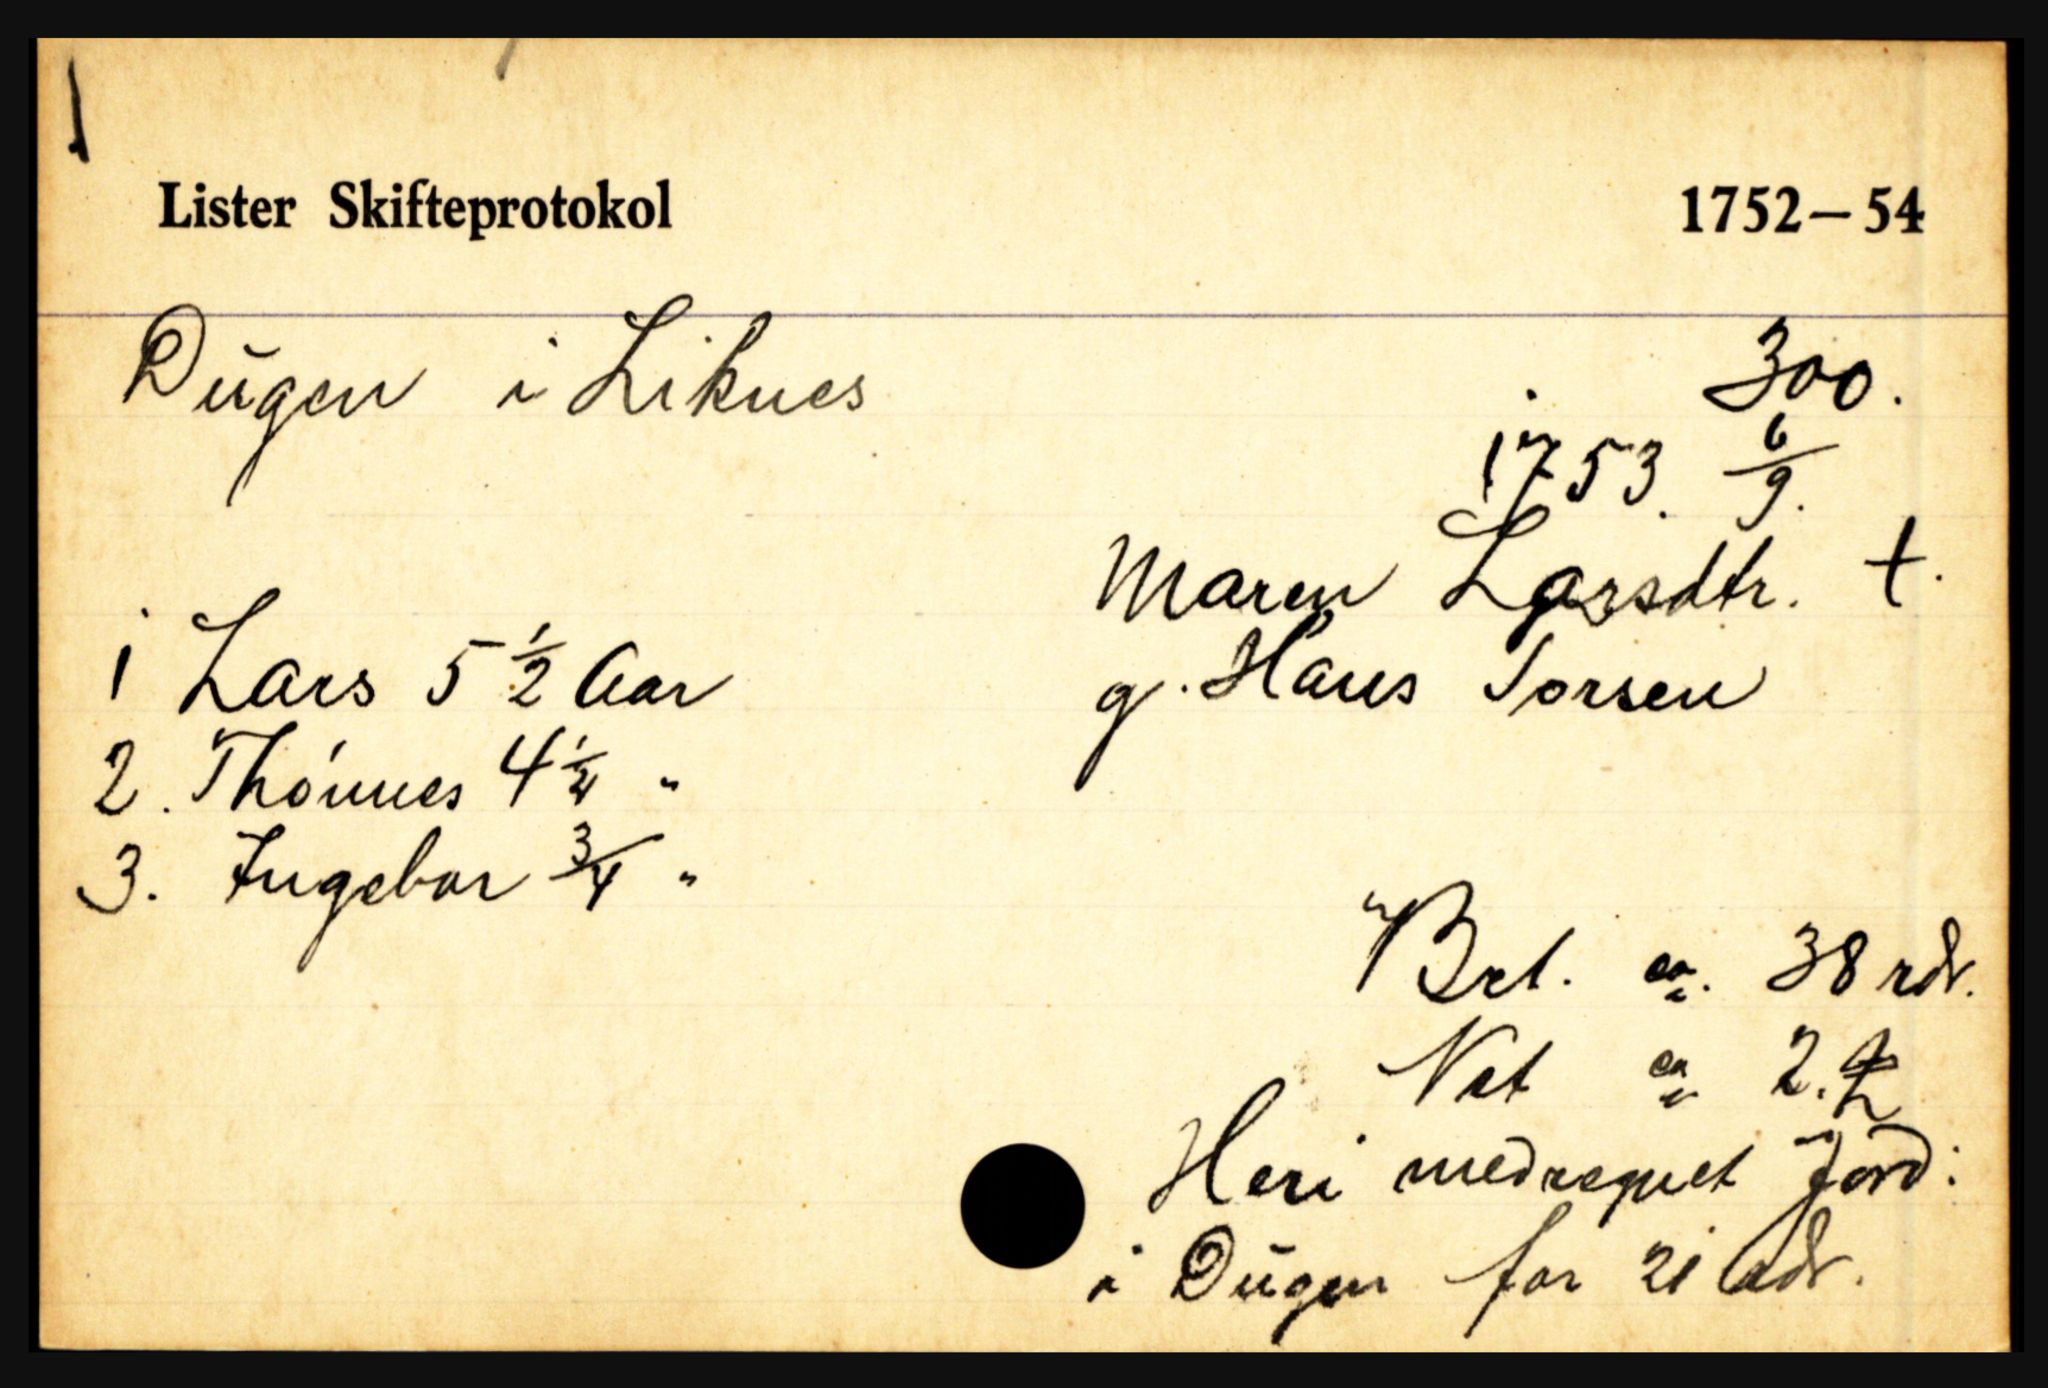 Lister Skifteprotokol 1752—54
Dŭgen i Liknes 300.
1753. 6/9.
Maren Larsdtr. †.
1 Lars 5 1/2 Aar g. Hans Torsen
2. Thönnes 4 1/4 "
3. Ingebor 3/4 "
Brt. ca. 38 rdr.
Net ca 2.
Heri medregnet jord:
i Dŭgen for 21 rdr.